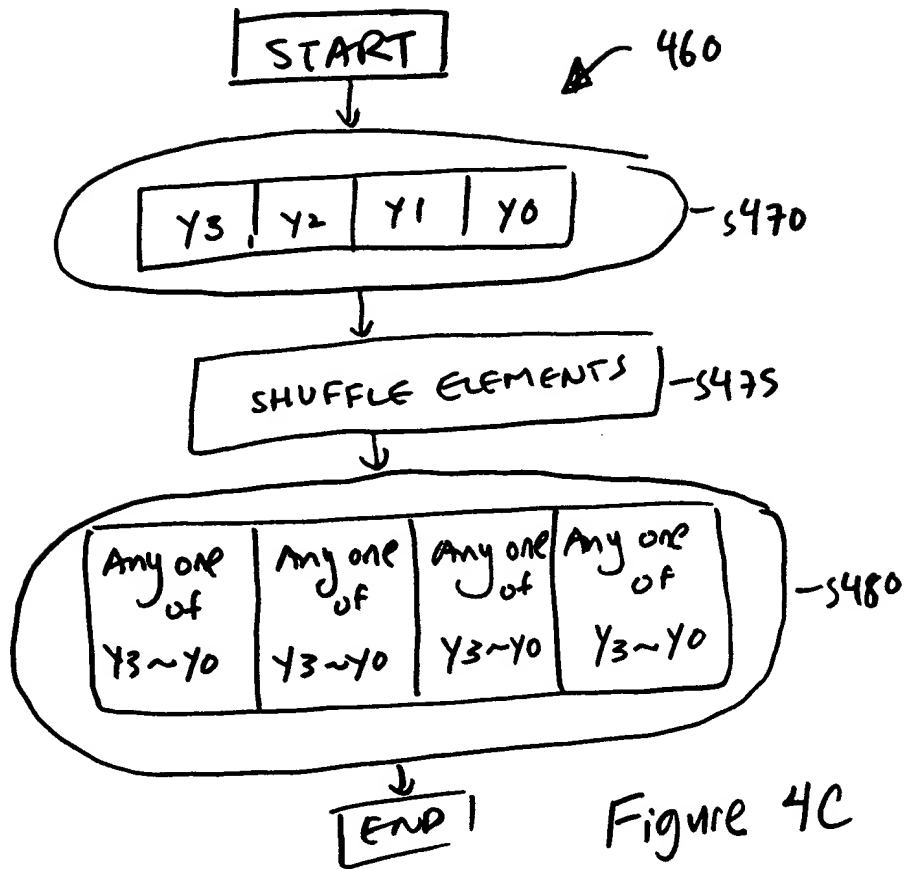 START
460
Y3 Y2 Y1 Y0
s470
SHUFFLE ELEMENTS
s475
Any one of Y3~Y0
Any one of Y3~Y0
Any one of Y3~Y0
Any one of Y3~Y0
s480
END
Figure 4C